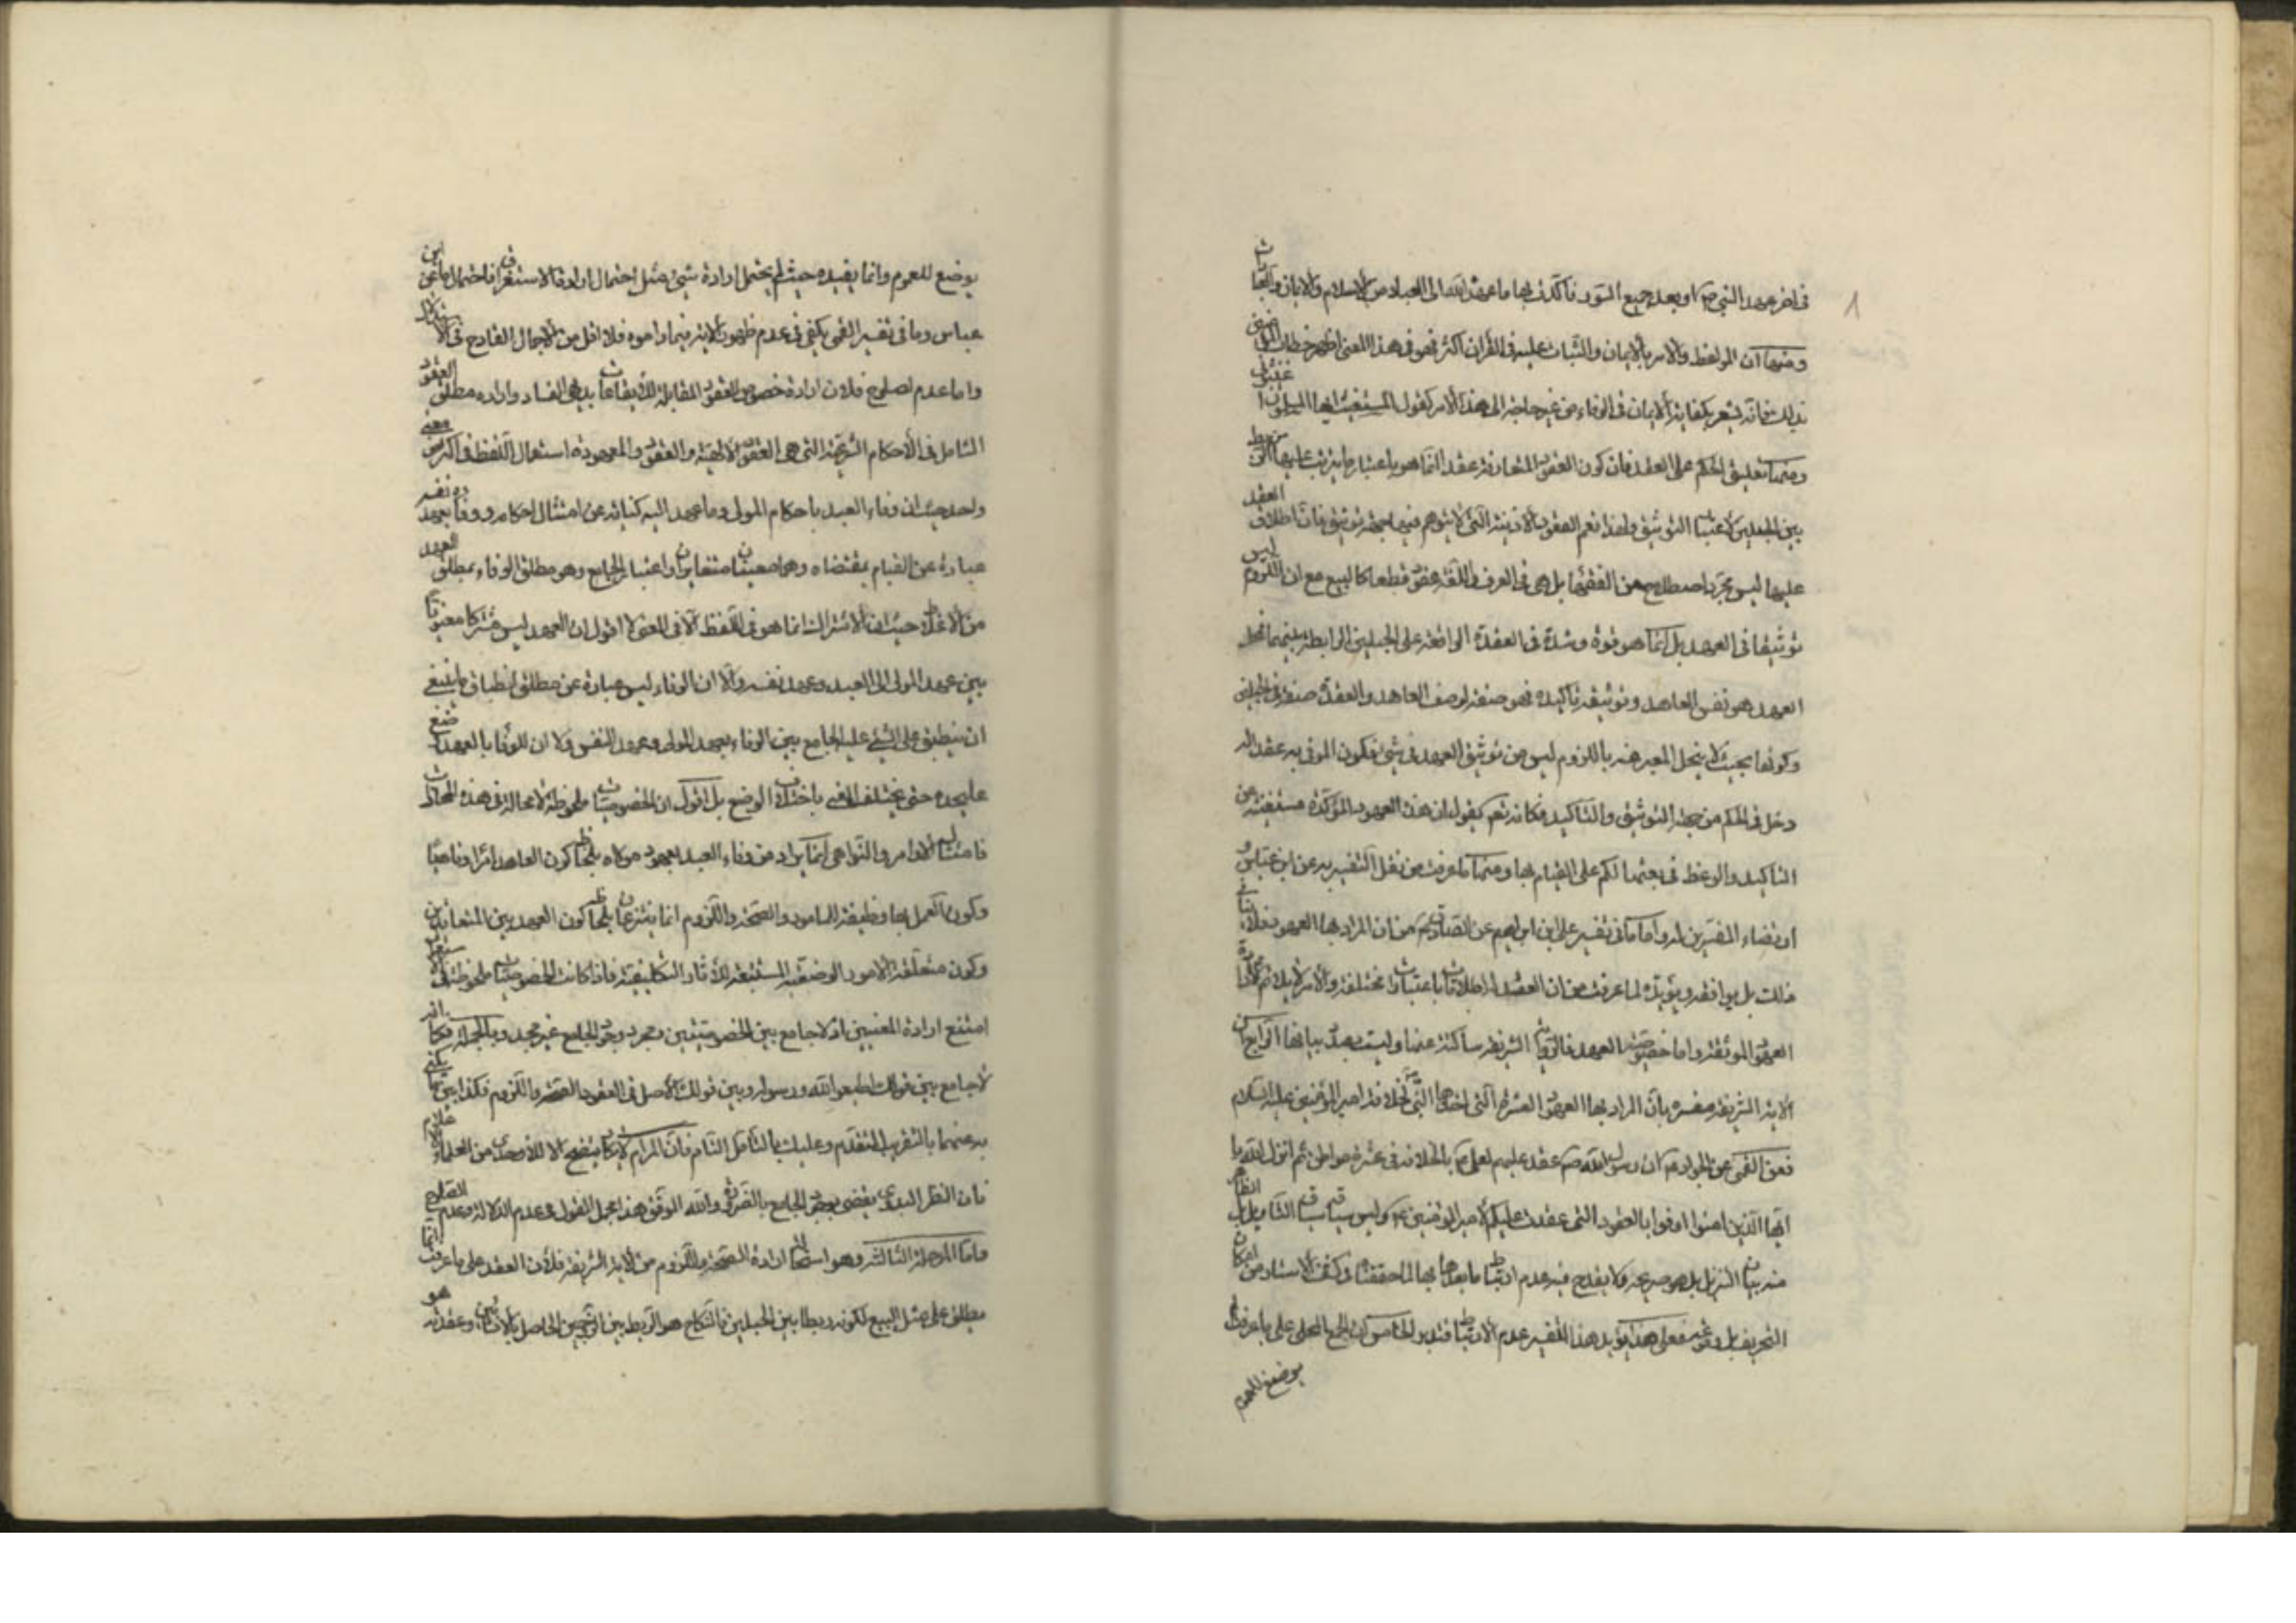 في اخر عهد النبي ص او بعد جميع السور فاكدت بها ما عهد الله الى العباد من الاسلام والايمان والثبات
ومنها ان الوعظ والامر بالايمان والثبات عليه في القرآن اكثر فهو في هذا المعنى اظهر
بذلك فانه يشعر بكفاية الايمان في الوفاء من غير حاجة الى هذا الامر كقول المستغيث ايها المسلمون
ومنها تعليق الحكم على العقد فان كون العقود المتعارفة عقدا انما هو باعتبار ما يترتب عليها من ربط
بين الحبلين لا عتبار التوثيق ولهذا تعم العقود الاذنية التي لا يتوهم فيها جهة توثيق فان اطلاق العقد
عليها ليس مجرد اصطلاح من الفقهاء بل هي في العرف واللغة عقود قطعا كالبيع مع ان اللزوم ليس
توثيقا في العهد بل انما هو قوة وشدة في العقدة الواقعة على الحبلين الرابطة بينهما فمحل
العهد هو نفس العاهد وتوثيقه تأكيده فهو صفة لوصف العاهد والعقدة صفة في الحبلين
وكونها بحيث لا ينحل المعبر عنه باللزوم ليس من توثيق العهد في شئ فكون الموفى به عقدا له
دخل في الحكم من جهة التوثيق والتاكيد فكانه تعم يقول ان هذه العهود المؤكدة مستغنية عن
التاكيد والوعظ في بعثها لكم على القيام بها ومنها ما عرفت من نقل التفسير به عن ابن عباس و
ارتضاء المفسرين له واما ما في تفسير علي ابن ابراهيم عن الصادق عم من ان المراد بها العهود فلا ينافي
ذلك بل يوافقه ويؤيده لما عرفت من ان العقد له اطلاقات باعتبارات مختلفة والامر لا يلائم الا ارادة
العهود الموثقة واما خصوصية العهد فالرواية الشريفة ساكتة عنها وليست بصدد بيانها الراجع كن
الاية الشريفة مفسرة بان المراد بها العهود العشرة التي اخذها النبي ص لخلافة امير المؤمنين عليه السلام
فعن القمي عن الجواد عم ان رسول الله صم عقد عليهم لعلي عم بالخلافة في عشرة مواطن ثم انزل الله يا
ايها الذين امنوا اوفوا بالعقود التي عقدت عليكم لامير المؤمنين عم وليس سياقه سياق التاويل بل الظاهر
منه بيان التنزيل بل هو صريحه ولا يقدح فيه عدم ارتباط ما بعدها بها لما حققناه وكشف الاستار من امكان
التحريف بل وقوعه فعلى هذا يؤيد هذا التفسير عدم الارتباط فتدبر الخامس ان الجمع المحلى على ما عرفت لم
يوضع للعموم
يوضع للعموم وانما يفيده حيث لم يحتمل ارادة شئ مثل احتمال ارادة الاستغراق فاحتمال ما عن ابن
عباس وما في تفسير القمي يكفي في عدم ظهور الاية فيما راموه فلا اقل من الاجمال القادح في الاستدلال
واما عدم الصلوح فلان ارادة خصوص العقود المقابلة للايقاعات بديهي الفساد وارادة مطلق العقود
الشامل في الاحكام الشرعية التي هي العقود الالهية والعقود المعهودة استعمال اللفظ في اكثر من معنى
واحد حيث ان وفاء العبد باحكام المولى وما عهد اليه كناية عن امتثال احكامه ووفائه بعهده نفسه
عبارة عن القيام بمقتضاه وهما معنيان متغايران واعتبار الجامع وهو مطلق الوفاء بمطلق العهد
من الاغلاط حيث ان الاشتراك انما هو في اللفظ لا في المعنى لا اقول ان العهد ليس مشتركا معنويا
بين عهد المولى الى العبد وعهد نفسه ولا ان الوفاء ليس عبارة عن مطلق انطباق ما ينبغي
ان ينطبق على الشئ عليه الجامع بين الوفاء بعهد المولى وعهد النفس ولا ان للوفاء بالعهد وضع
عليحده حتى يختلف المعنى باختلاف الوضع بل اقول ان الخصوصيات ملحوظة لا محالة في هذه المحاورات
فامتثال الاوامر والنواهي انما يراد من وفاء العبد بعهود مولاه بلحاظ كون العاهد امرا وناهيا
وكون العمل بها وظيفة للمامور والصحة واللزوم انما ينتزعان بلحاظ كون العهد بين المتعاقدين
وكون متعلقه الامور الوضعية المستتبعة للاثار التكليفية فاذا كانت الخصوصيات ملحوظة في الاستعمال
امتنع ارادة المعنيين اذ لا جامع بين الخصوصيتين ومجرد وجود الجامع غير مجد وبالجملة فكما انه
لا جامع بين قولك اطيعوا الله ورسوله وبين قولك الاصل في العقود الصحة واللزوم فكذا بين ما يكنى
به عنهما بالتقريب المتقدم وعليك بالتامل التام فان المرام لا يكاد يتضح الا للاوحدي من العلماء الاعلام
فان النظر البدوي يقضي بوجود الجامع بالضرورة والله الموفق هذا مجمل القول في عدم الدلالة وعدم الصلوح
واما المرحلة الثالثة وهو استحالة ارادة الصحة واللزوم من الاية الشريفة فلان العقد على ما عرفت انما
يطلق على مثل البيع لكونه ربطا بين الحبلين فالنكاح هو الربط بين الزوجين الحاصل بالانشاء وعقدته هو